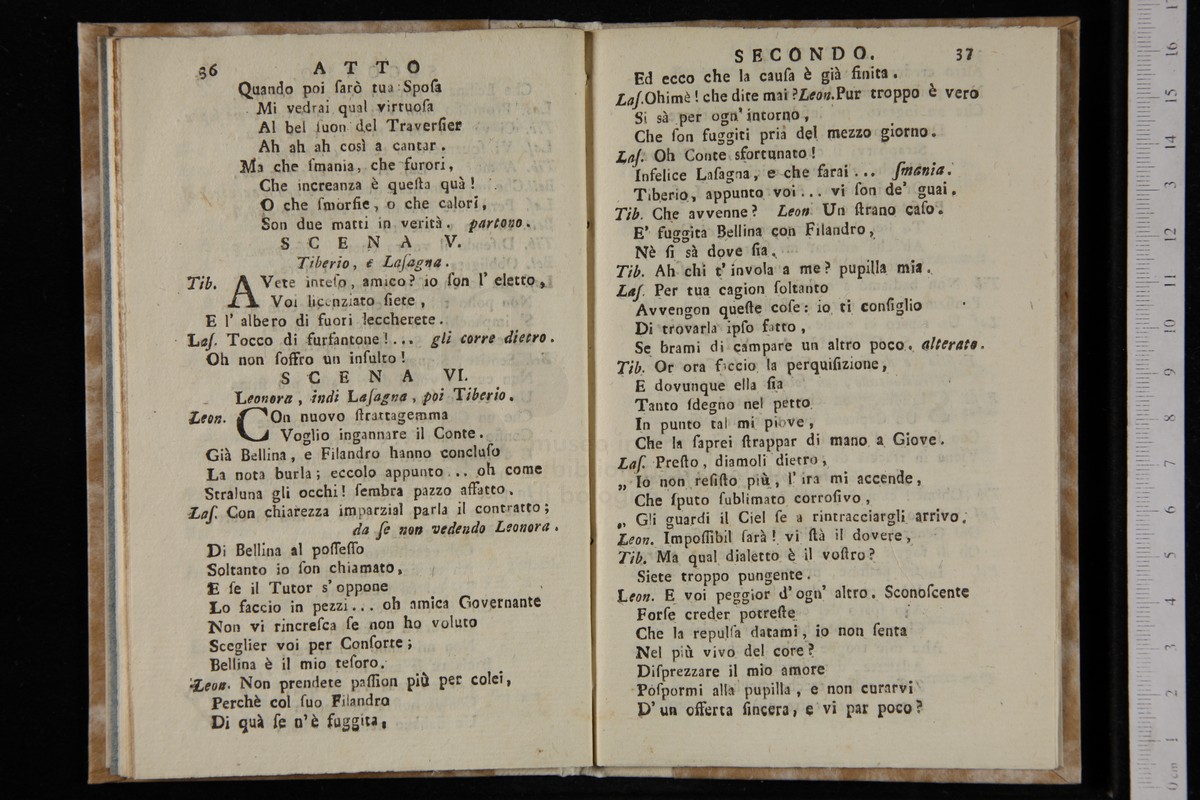 36 ATTO
Quando poi ſarò tua Spoſa
Mi vedrai qual virtuoſa
Al bel ſuon del Traverſier
Ah ah ah così a cantar.
Ma che ſmania, che furori,
Che increanza è queſta quà!
O che ſmorfie, o che calori,
Son due matti in verità. partono.
SCENA V.
Tiberio, e Laſagna.
Tib. AVete inteſo, amico? io ſon l' eletto,
Voi licenziato ſiete,
E l' albero di fuori leccherete.
Laſ. Tocco di furfantone!... gli corre dietro.
Oh non ſoffro un inſulto!
SCENA VI.
Leonora, indi Laſagna, poi Tiberio.
Leon. COn nuovo ſtrattagemma
Voglio ingannare il Conte.
Già Bellina, e Filandro hanno concluſo
La nota burla; eccolo appunto... oh come
Straluna gli occhi! ſembra pazzo affatto.
Laſ. Con chiarezza imparzial parla il contratto;
da ſe non vedendo Leonora.
Di Bellina al poſſeſſo
Soltanto io ſon chiamato,
E ſe il Tutor s' oppone
Lo faccio in pezzi... oh amica Governante
Non vi rincreſca ſe non ho voluto
Sceglier voi per Conſorte;
Bellina è il mio teſoro.
Leon. Non prendete paſſion più per colei,
Perchè col ſuo Filandro
Di quà ſe n' è fuggita,
SECONDO. 37
Ed ecco che la cauſa è già finita.
Laſ. Ohimè! che dite mai? Leon. Pur troppo è vero
Si sà per ogn' intorno,
Che ſon fuggiti pria del mezzo giorno.
Laſ. Oh Conte sfortunato!
Infelice Laſagna, e che farai... ſmania.
Tiberio, appunto voi... vi ſon de' guai.
Tib. Che avvenne? Leon. Un ſtrano caſo.
E' fuggita Bellina con Filandro,
Nè ſi sà dove ſia.
Tib. Ah chi t' invola a me? pupilla mia.
Laſ. Per tua cagion ſoltanto
Avvengon queſte coſe: io ti conſiglio
Di trovarla ipſo fatto,
Se brami di campare un altro poco. alterato.
Tib. Or ora faccio la perquiſizione,
E dovunque ella ſia
Tanto ſdegno nel petto
In punto tal mi piove,
Che la ſaprei ſtrappar di mano a Giove.
Laſ. Preſto, diamoli dietro,
„ Io non reſiſto più, l' ira mi accende,
Che ſputo ſublimato corroſivo,
„ Gli guardi il Ciel ſe a rintracciargli arrivo.
Leon. Impoſſibil ſarà! vi ſtà il dovere,
Tib. Ma qual dialetto è il voſtro?
Siete troppo pungente.
Leon. E voi peggior d' ogn' altro. Sconoſcente
Forſe creder potreſte
Che la repulſa datami, io non ſenta
Nel più vivo del core?
Diſprezzare il mio amore
Poſpormi alla pupilla, e non curarvi
D' un offerta ſincera, e vi par poco?